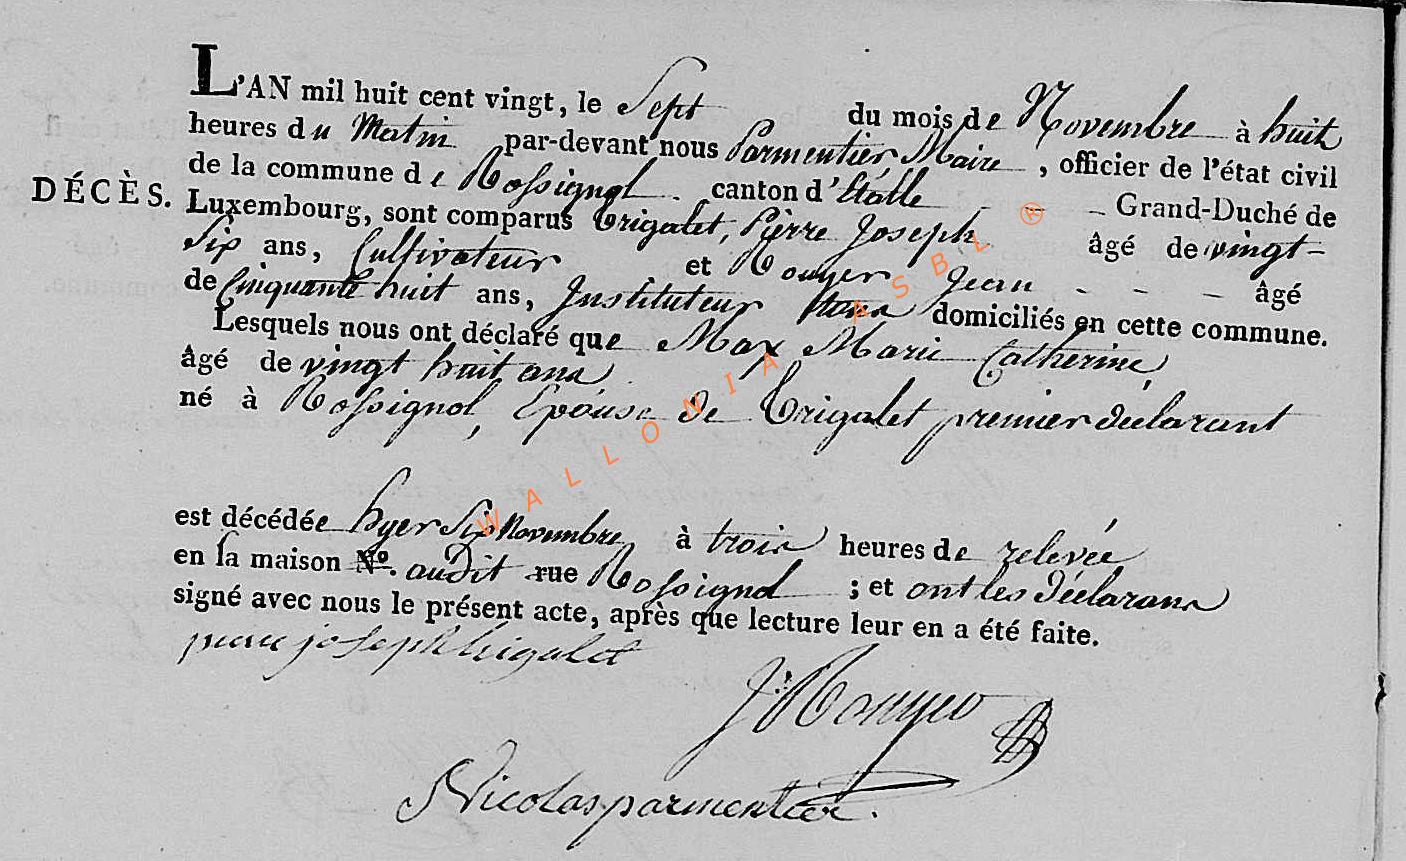 L'AN mil huit cent vingt, le Sept du mois de Novembre à huit
heures du Matin par-devant nous Parmentier Maire, officier de l'état civil
de la commune de Rossignol canton d'Etalle Grand-Duché de
DÉCÈS.
Luxembourg, sont comparus Trigalet, Pierre Joseph âgé de vingt-
Six ans, Cultivateur et Rouyer Jean âgé
de Cinquante huit ans, Instituteur domiciliés en cette commune.
Lesquels nous ont déclaré que Max Marie Catherine,
âgé de vingt huit ans
né à Rossignol, Epouse de Trigalet premier declarant
est décédée hyer Six Novembre à trois heures de relevée
en la maison N.º audit rue Rossignol ; et ont les Déclarans
signé avec nous le présent acte, après que lecture leur en a été faite.
pierre joseph trigalet
J. Rouyer
Nicolas parmentier.
WALLONIA ASBL ®